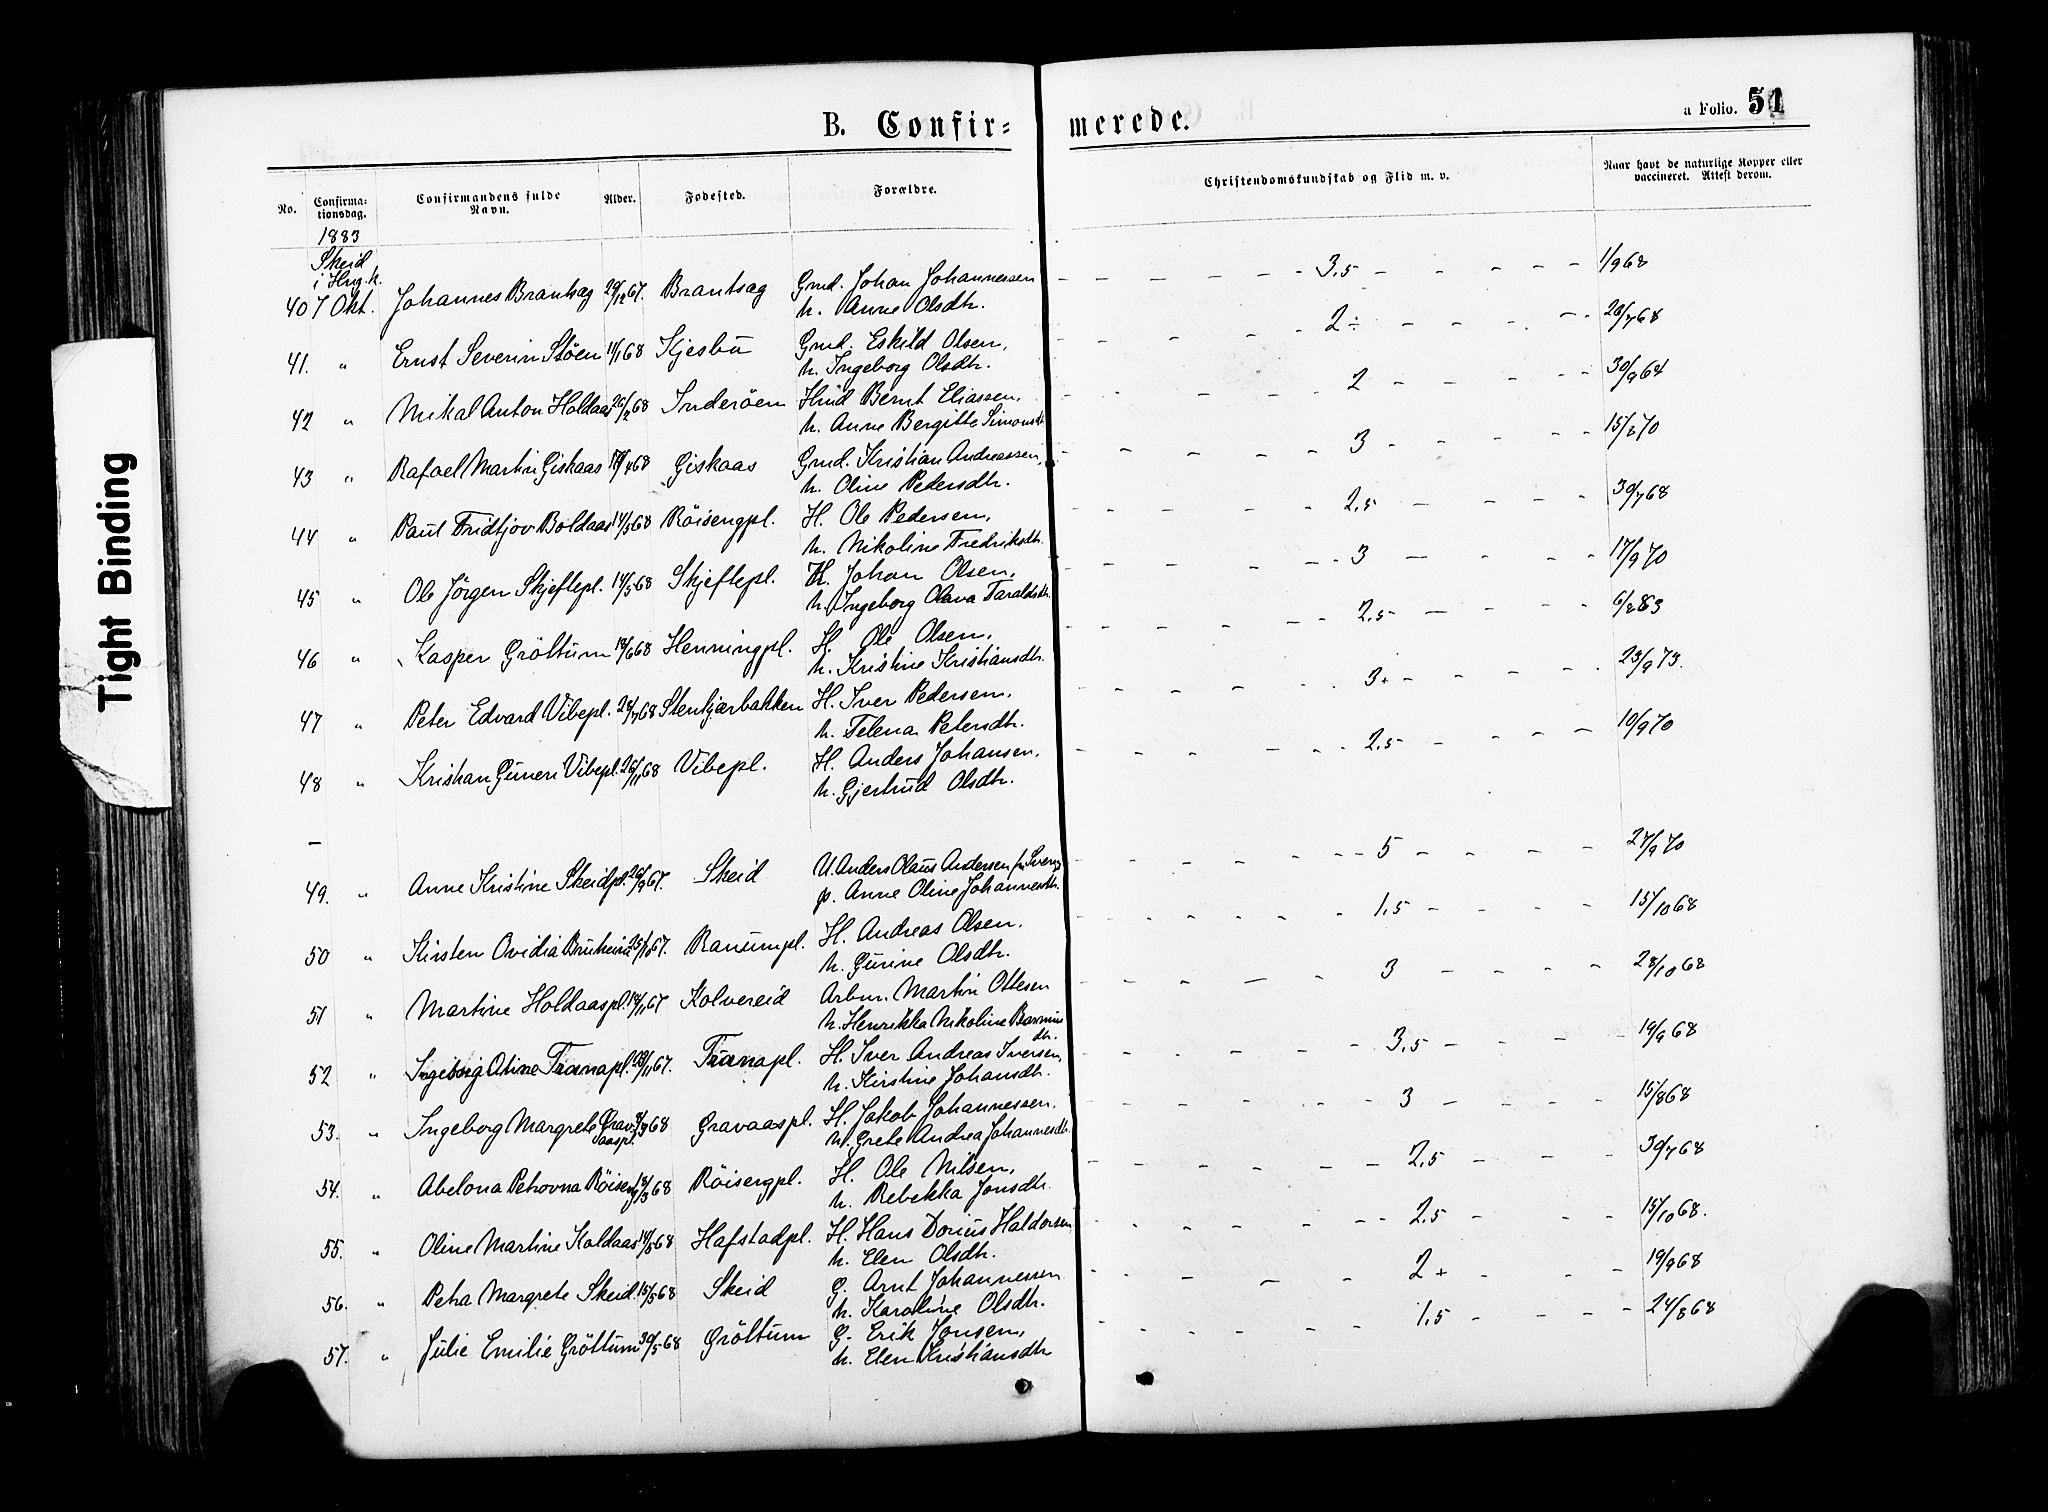 B. Confir=
merede.
a Folio. 51
No.
Confirma=
tionsdag.
Confirmandens fulde
Navn.
Alder.
Fødested.
Forældre.
Christendomskundskab og Flid m. v.
Naar havt de naturlige Kopper eller
vaccineret. Attest derom.
1883
Skeid
i Hng. k.
40 7 Okt. Johannes Brandsag 29/12 67. Brandsag Gmd. Johan Johannessen - - - - - - - 3,5 - - - - - 1/9 68
h. Anne Olsdtr.
41. " Ernst Severin Stöen 11/1 68 Kjesbu Gmd. Eskild Olsen, - - - - - 2÷ - - - - - 28/7 68
h. Ingeborg Olsdtr.
42 " Mikal Anton Holdaas 26/2 68 Inderöen Hmd Bernt Eliassen, - - - - - 2 - - - - - 30/9 64
h. Anne Bergitte Simonsdt
43 " Rafael Martin Giskaas 17/4 68 Giskaas Gmd. Kristian Andreassen, - - - - - 3 - - - - - 15/8 70
h. Oline Pedersdtr.
44 " Paul Fridtjov Boldaas 14/5 68 Röisengpl. H. Ole Pedersen, - - - - - 2,5 - - - - 30/7 68
h. Nikoline Fredriksdtr.
45 " Ole Jörgen Skjeftepl. 14/5 68 Skjeftepl. H. Johan Olsen, - - - - - - 3 - - - - - 17/9 70
h. Ingeborg Olava Taraldsdtr.
46 " Kasper Gröttum 19/6 68 Henningpl. H. Ole Olsen, - - - - - - 2,5 - - - - 6/8 83
h. Kristine Kristiansdtr.
47 " Peter Edvard Vibepl. 28/7 68 Stenkjærbakken H. Iver Pedersen, - - - - - 3+ - - - - 23/9 73.
h. Telena Petersdtr.
48 " Kristian Guneri Vibepl. 26/11 68 Vibepl. H. Anders Johansen, - - - - - - 2,5 - - - - 10/9 70
h. Gjertrud Olsdtr.
—
49. " Anne Kristine Skeidpl. 26/9 67. Skeid U. Anders Olaus Andersen - - - - - - - 5 - - - - - 27/9 70
p. Anne Oline Johannesdtr.
50 " Kirsten Ovidia Bruheim 25/10 67. Banumpl. H. Andreas Olsen, - - - - - - - 1,5 - - - - 15/10 68
h. Gurine Olsdtr.
51 " Martine Holdaaspl. 18/11 67 Kolvereid Arbm. Martin Ottesen - - - — - 3 - - - - - 28/10 68
h. Henrikka Nikoline
dtr.
52 " Ingeborg Oline Tranapl. 28/11 67. Tranapl. H. Iver Andreas Iversen, - - - - - - - 3,5 - - - - 19/9 68
h. Kirstine Johansdtr.
53. " Ingeborg Margrete Grav- 68 Gravaaspl. H. Jakob Johannessen, - - - - - - 3 - - - - - 15/8 68
aaspl. h. Grete Andrea Johannesdtr.
54. " Abelona Petrovna Röiseng 14/3 68 Röisengpl. H. Ole Nilsen, - - - - - - 2,5 - - - 30/7 68
h. Rebekka Jonsdtr.
55. " Oline Martine Koldaas 14/5 68 Hafstadpl. H. Hans Dorius Haldorsen, - - - - - - - 2,5 - - - 15/10 68.
h. Elen Olsdtr.
56. " Petra Margrete Skeid. 15/5 68 Skeid G. Arnt Johannessen - - - — - 2+ - - - 19/9 68
h. Karoline Olsdtr.
57. " Julie Emilie Gröttum 30/5 68 Gröttum G. Erik Jonsen, - - - - - - 1,5 - - - - 24/8 68
h. Elen Kristiansdtr
Tight Binding